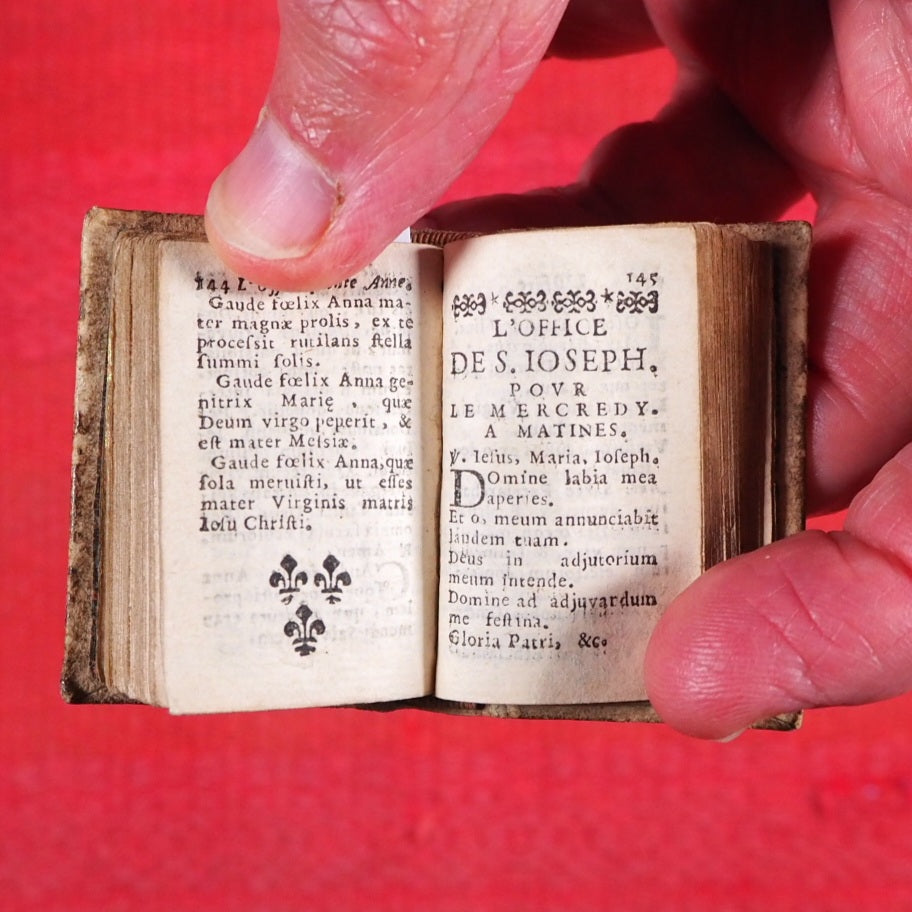 144 L'Off nte Anne.
Gaude fœlix Anna ma-
ter magnæ prolis, ex te
proceſsit rutilans ſtella
ſummi ſolis.
Gaude fœlix Anna ge-
nitrix Marię, quæ
Deum virgo peperit, &
eſt mater Meſsiæ.
Gaude fœlix Anna, quæ
ſola meruiſti, ut eſſes
mater Virginis matris
Ioſu Chriſti.
145
L'OFFICE
DE S. IOSEPH.
POVR
LE MERCREDY.
A MATINES.
℣. Ieſus, Maria, Ioſeph.
Domine labia mea
aperies.
Et o, meum annunciabit
laudem tuam.
Deus in adjutorium
meum intende.
Domine ad adjuvardum
me feſtina.
Gloria Patri, &c.